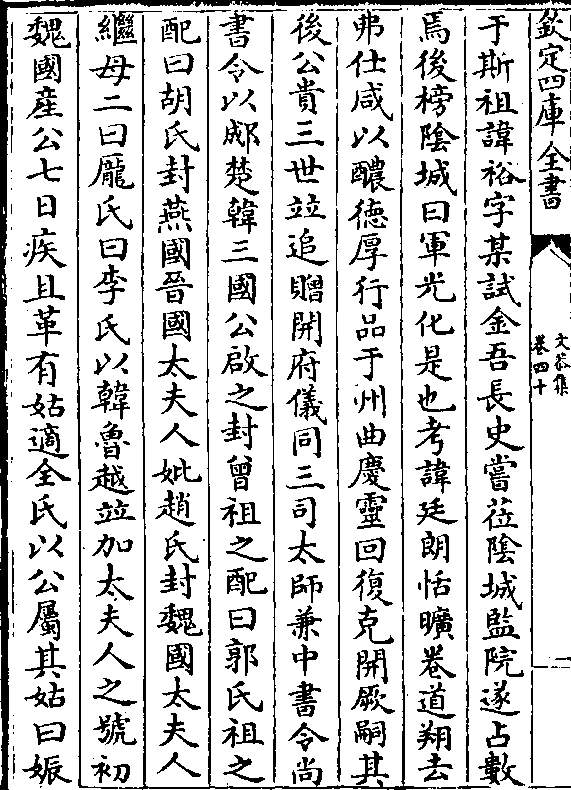 欽定四庫全書
文恭集
卷四十
一
于斯祖諱裕字某試金吾長史嘗莅陰城監院遂占數
焉後榜陰城曰軍光化是也考諱廷朗恬曠卷道翔去
弗仕咸以醲德厚行品于州曲慶靈回復克開厥嗣其
後公貴三世竝追贈開府儀同三司太師兼中書令尚
書令以郕楚韓三國公啟之封曾祖之配曰郭氏祖之
配曰胡氏封燕國晉國太夫人妣趙氏封魏國太夫人
繼母二曰龐氏曰李氏以韓魯越竝加太夫人之號初
魏國産公七日疾且革有姑適全氏以公屬其姑曰娠